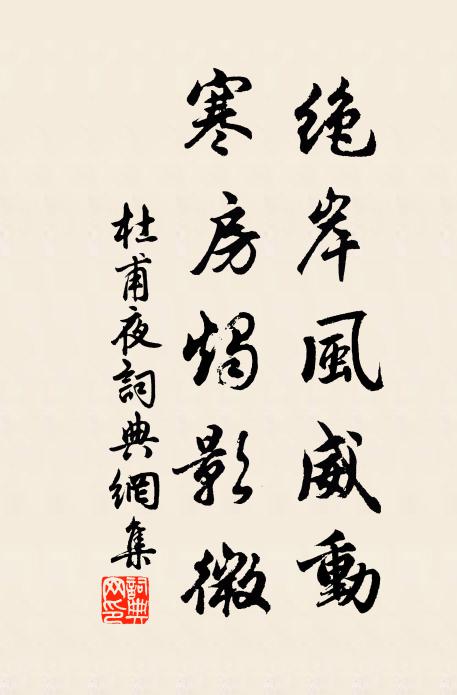 絶岸風威動
寒房燭影微
杜甫夜詞典網集
詞典网印